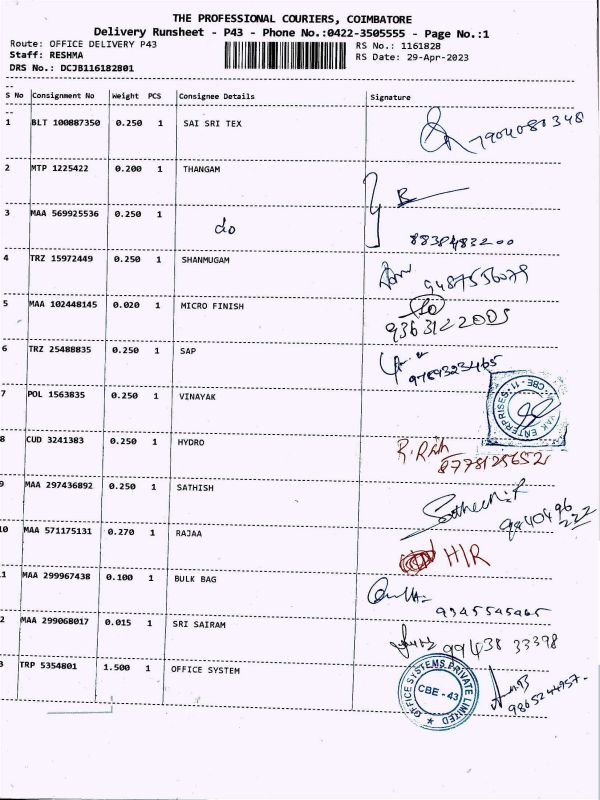 THE PROFESSIONAL COURIERS, COIMBATORE
Delivery Runsheet - P43 - Phone No.:0422-3505555 - Page No.:1
Route: OFFICE DELIVERY P43
Staff: RESHMA
DRS No.: DCJB116182801
RS No.: 1161828
RS Date: 29-Apr-2023
S No Consignment No Weight PCS Consignee Details Signature
1 BLT 100887350 0.250 1 SAI SRI TEX 7904080348
2 MTP 1225422 0.200 1 THANGAM
3 MAA 569925536 0.250 1 do 8838483200
4 TRZ 15972449 0.250 1 SHANMUGAM
5 MAA 102448145 0.020 1 MICRO FINISH 9363122005
6 TRZ 25488835 0.250 1 SAP
7 POL 1563835 0.250 1 VINAYAK
ENTERPRISES CBE - 11
8 CUD 3241383 0.250 1 HYDRO
9 MAA 297436892 0.250 1 SATHISH
10 MAA 571175131 0.270 1 RAJAA H/R
1 MAA 299967438 0.100 1 BULK BAG
2 MAA 299068017 0.015 1 SRI SAIRAM 99438 33398
3 TRP 5354801 1.500 1 OFFICE SYSTEM
OFFICE SYSTEMS PRIVATE LIMITED
CBE - 43